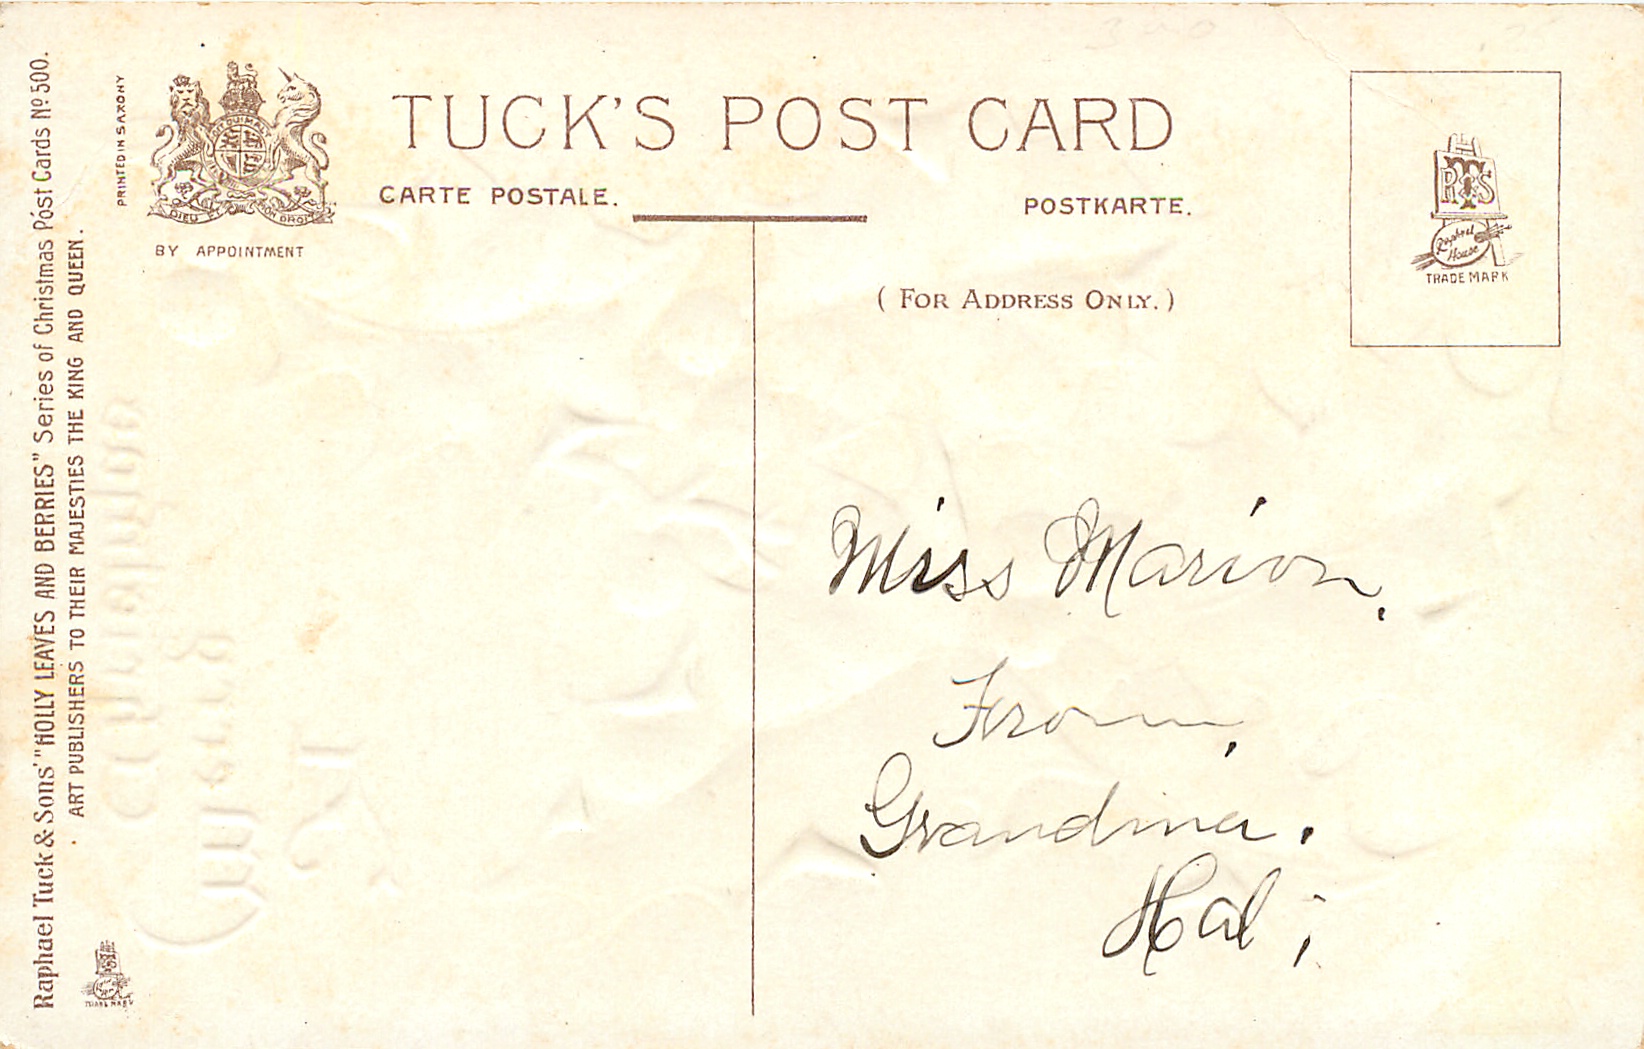 Raphael Tuck & Sons' "HOLLY LEAVES AND BERRIES" Series of Christmas Post Cards Nº 500.
ART PUBLISHERS TO THEIR MAJESTIES THE KING AND QUEEN.
PRINTED IN SAXONY
DIEU ET MON DROIT
BY APPOINTMENT
TUCK'S POST CARD
CARTE POSTALE.
POSTKARTE.
(FOR ADDRESS ONLY.)
RTS
Raphael
House
TRADE MARK
Miss Marion.
From,
Grandma.
Hal;
TRADE MARK